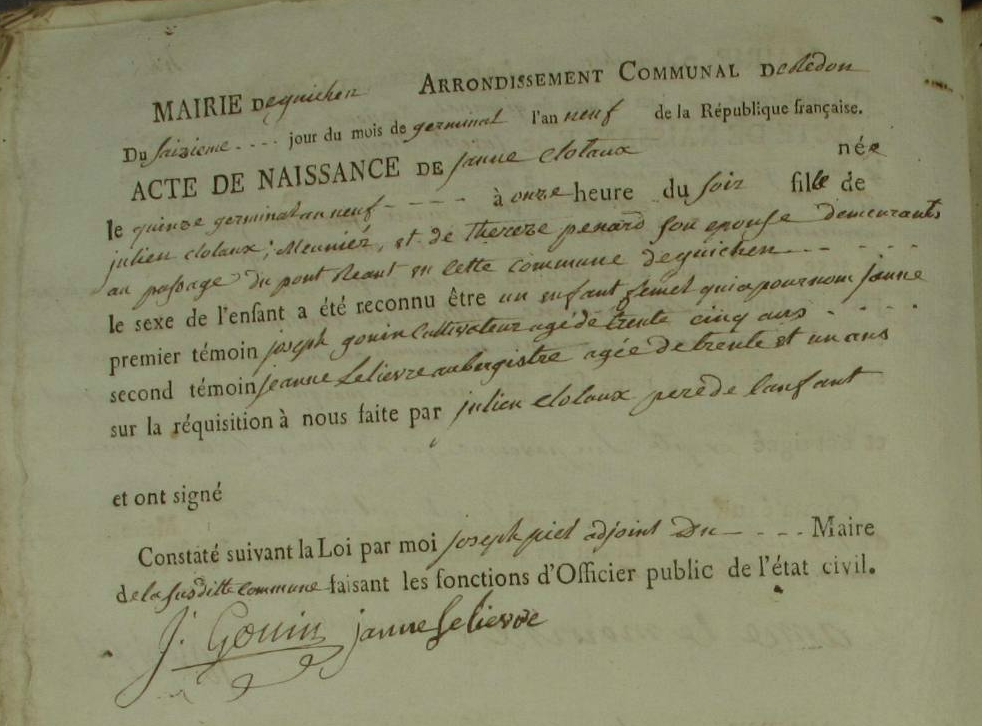 MAIRIE De guichen ARRONDISSEMENT COMMUNAL De Redon
Du Saizieme - - - - jour du mois de germinal l'an neuf de la République française.
ACTE DE NAISSANCE DE janne clolaux née
le quinze germinal an neuf - - - - à onze heure du soir fille de
julien clolaux, Meunier, et de Thereze penard son epouse demeurants
au passage du pont Reant en cette commune de guichen - - - - -
le sexe de l'enfant a été reconnu être un enfant femel qui a pour nom janne
premier témoin joseph gouin Cultivateur agé de trente cinq ans - - - -
second témoin jeanne Lelievre aubergistre agée de trente et un ans
sur la réquisition à nous faite par julien clolaux pere de l'anfant
et ont signé
Constaté suivant la Loi par moi joseph piel adjoint Du - - - - Maire
de la susditte commune faisant les fonctions d'Officier public de l'état civil.
J. Gouin janne Lelievre